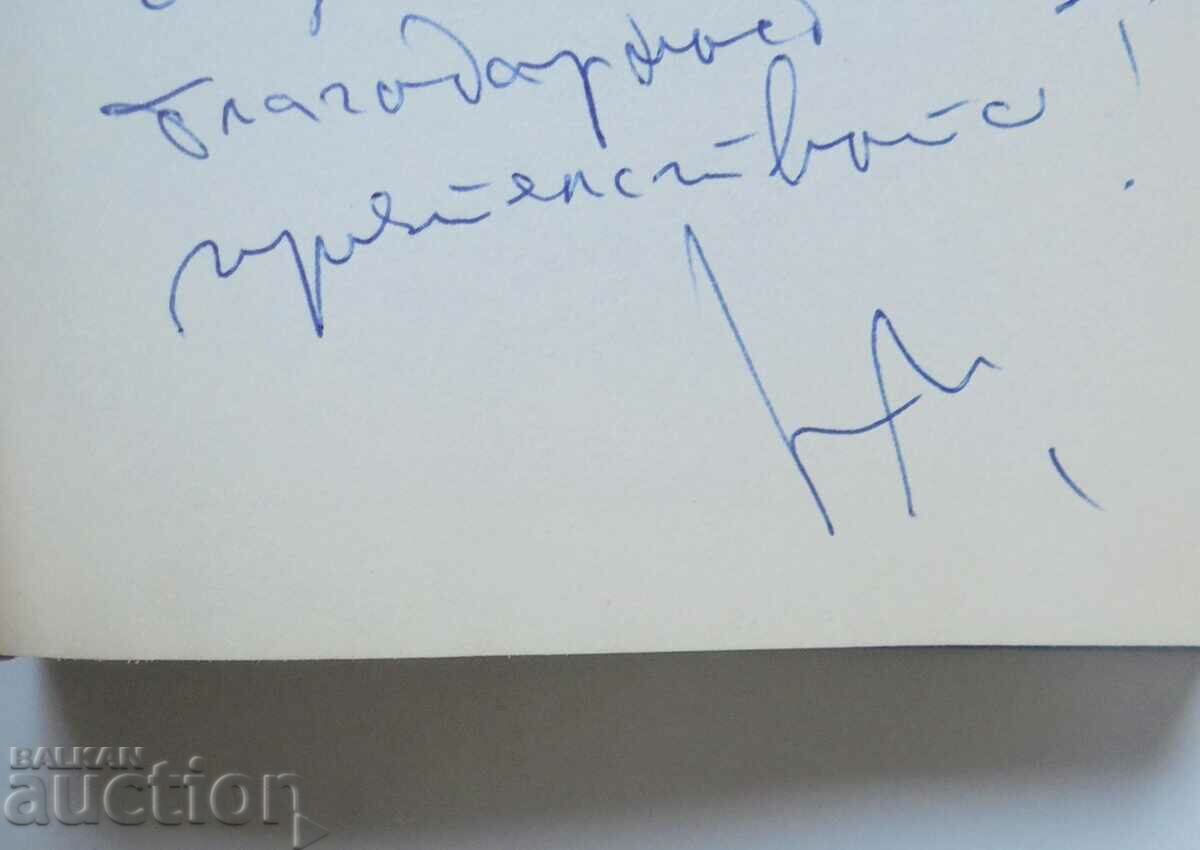 благодарност
приятелството!
BALKAN
auction